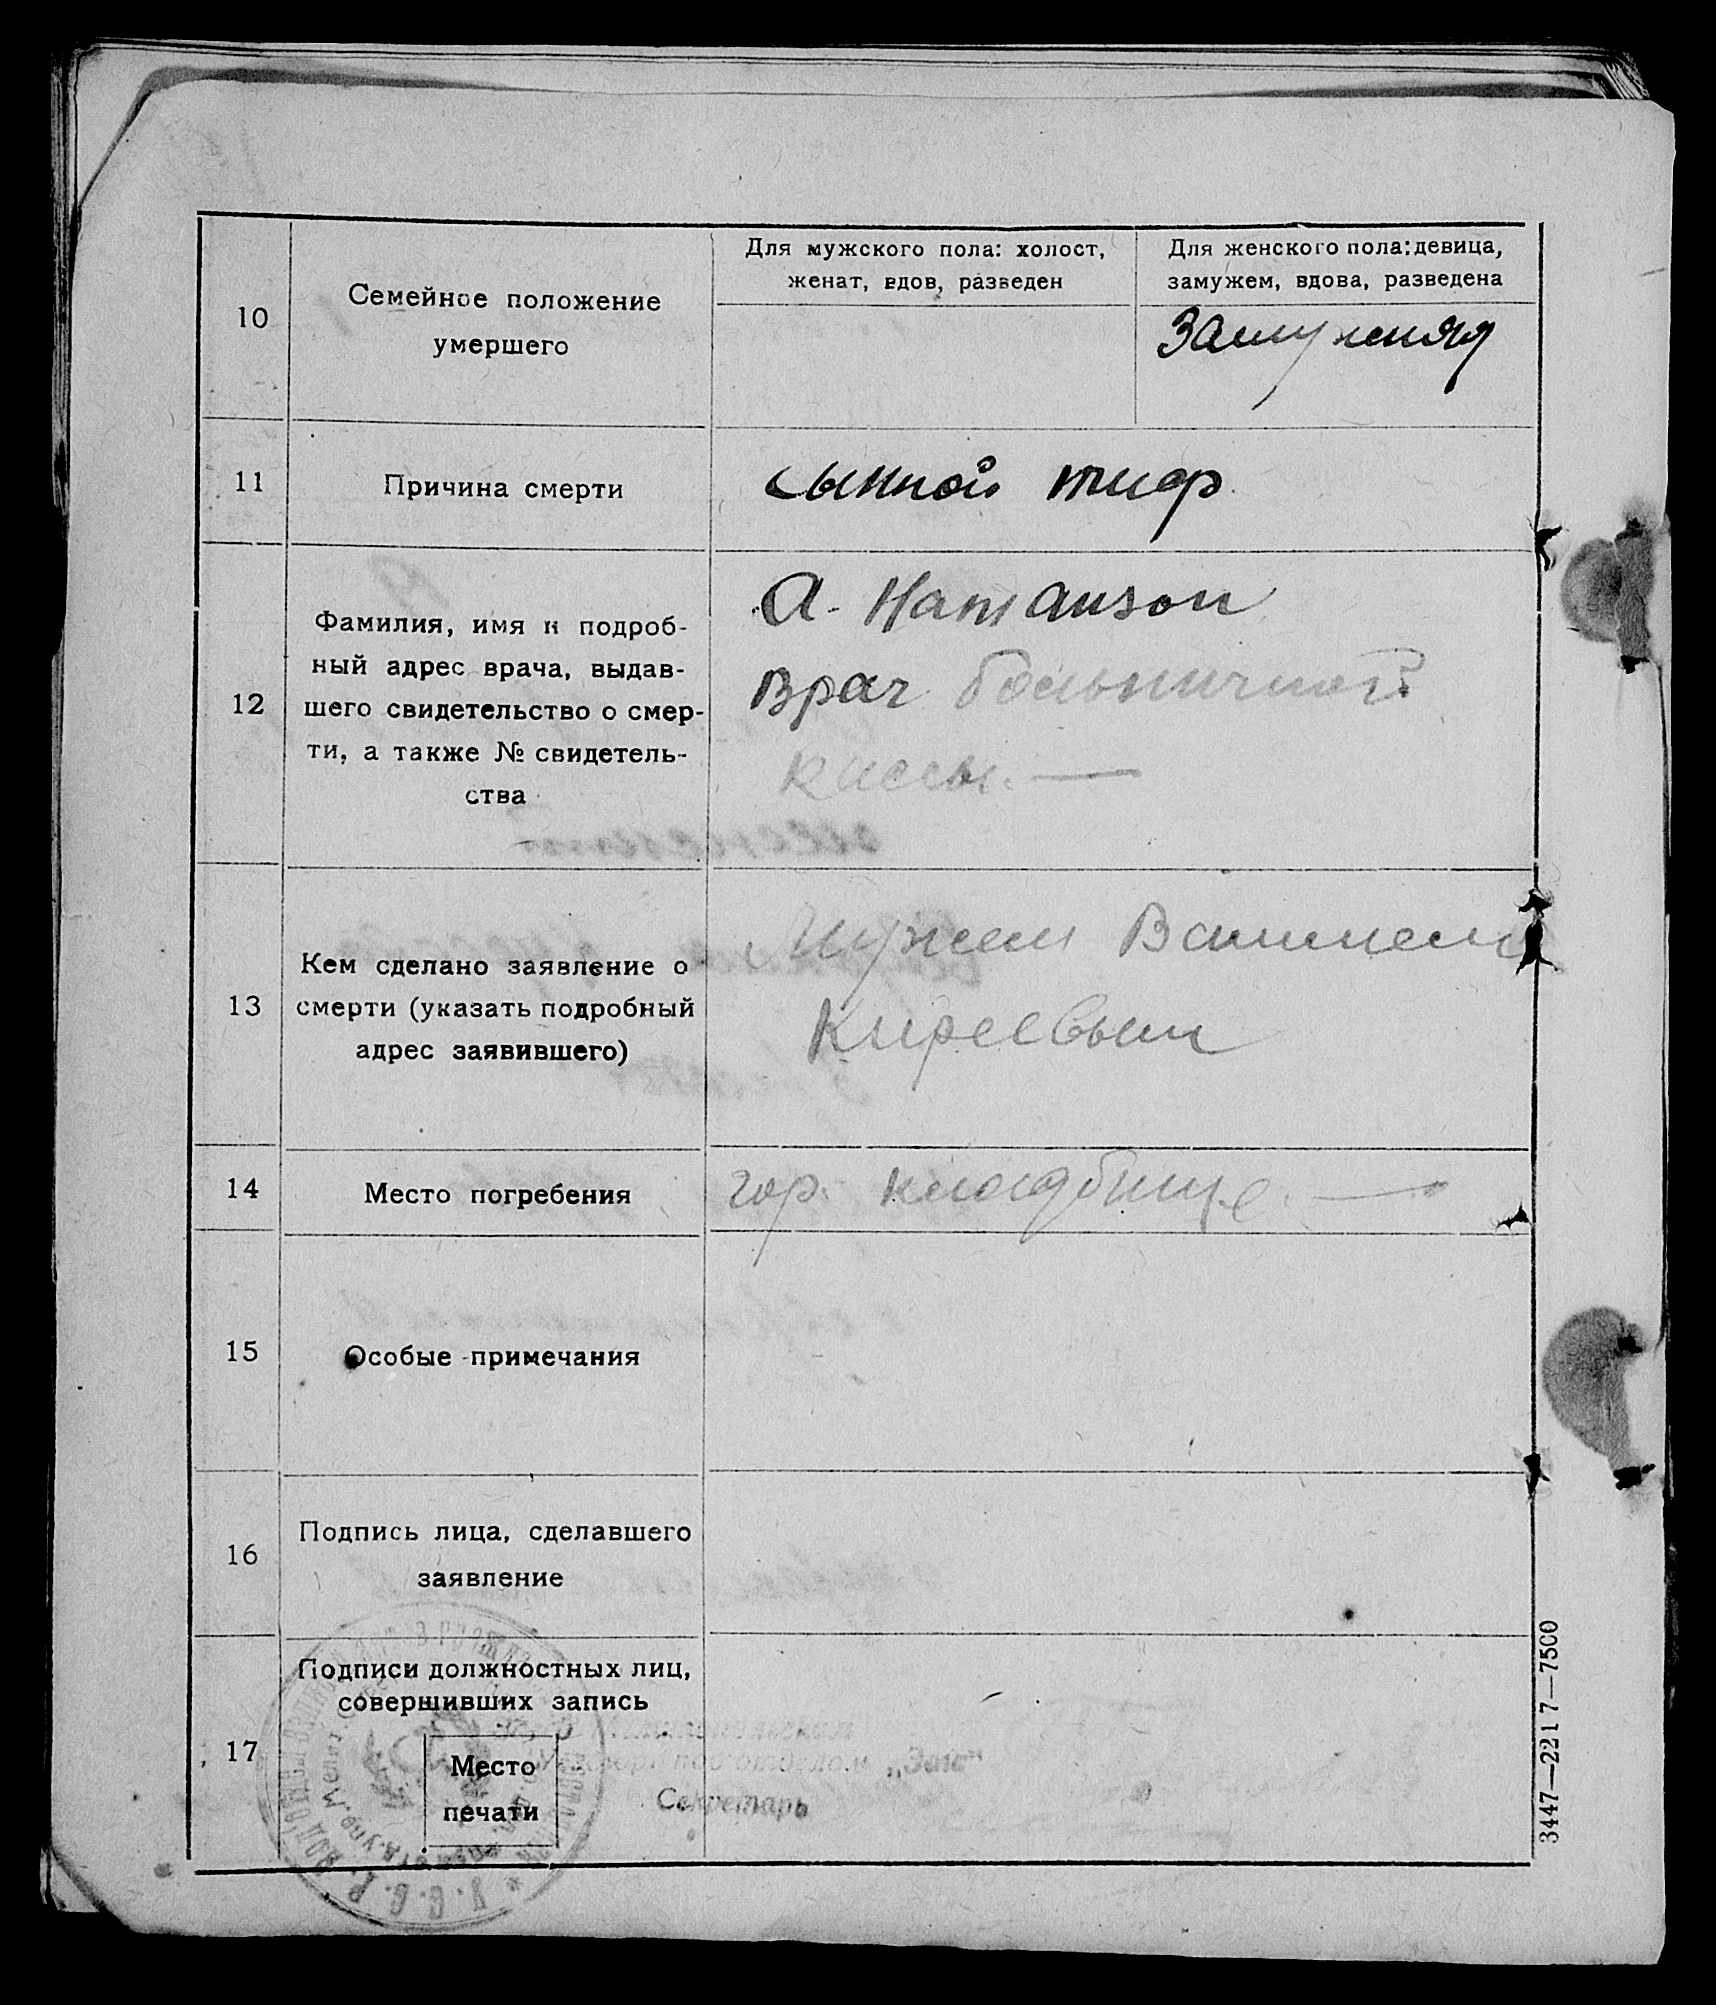 10
Семейное положение
умершего
Для мужского пола: холост,
женат, вдов, разведен
Для женского пола: девица,
замужем, вдова, разведена
Замужняя
11
Причина смерти
сыпной тиф
12
Фамилия, имя и подроб-
ный адрес врача, выдав-
шего свидетельство о смер-
ти, а также № свидетель-
ства
А. Натанзон
Врач больничной
кассы. —
13
Кем сделано заявление о
смерти (указать подробный
адрес заявившего)
Мужем
Киреевым
14
Место погребения
гор. кладбище. —
15
Особые примечания
16
Подпись лица, сделавшего
заявление
17
Подписи должностных лиц,
совершивших запись
Место
печати
подотделом „Загс"
Секретарь
У.С.С.Р.
3447—2217—7500